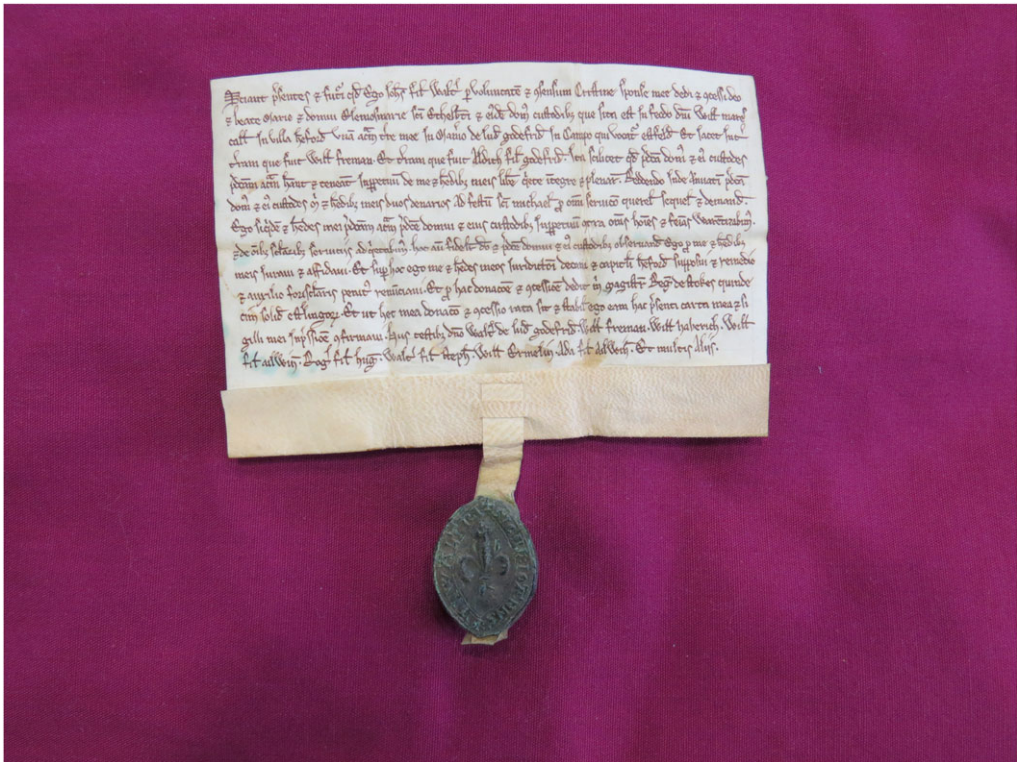 Sciant p̄sentes ⁊ fut̉i qd̄ Ego Joh̄s fil̓ Walt̓i ꝑ voluntatē ⁊ ꝯsensum Cristine sponse mee dedi ⁊ ꝯcessi deo
⁊ beate Marie ⁊ domui Elemosinarie sc̄i Ethelb̓ti ⁊ eiusd̄ dom̓ custodib; que sita est in feodo dn̄i Will̓
call̓ in villa h̓eford̓ Vnā acrā t̓re mee in Man̓io de lud̓ godefrid̓ in Campo qui vocat̓ Et iacet int̓
t̓ram que fuit Will̓ freman. Et t̓ram que fuit Aldith̓ fil̓ godefrid̓. Ita scilicet qd̄ p̄dc̄a dom̓ ⁊ ei̓ custodes
p̄dc̄am acrā habeāt ⁊ teneāt inꝑpetuū de me ⁊ h̓edib; meis lib̓e q̓ete integre ⁊ plenar̓. Reddendo inde Annuatī p̄dc̄a
dom̓ ⁊ ei̓ custodes m̓ ⁊ h̓edib; meis duos denarios Ad festū sc̄i michael̓ ꝓ om̄i seruicio querel̓ sequel̓ ⁊ demand̓.
Ego siq̓dē ⁊ h̓edes mei p̄dc̄am acrā p̄dc̄e domui ⁊ eius custodib; inꝑpetuū ꝯtra om̄s ho̓ies ⁊ fe̓ias Warentizabim̓.
⁊ de oīb; sc̄larib; seruiciis adq̓etabim̓. hoc au̓ fidelit̓ dō ⁊ p̄dc̄e domui ⁊ ei̓ custodib; obseruand̓ Ego ꝑ me ⁊ h̓edib;
meis iuraui ⁊ affidaui. Et sup̓ hoc ego me ⁊ h̓edes meos iurisdictōi decani ⁊ capituli h̓eford̓ supposui ⁊ remedio
⁊ auxilio fori sc̄laris penit̓ renūciaui. Et ꝓ hac donacōe ⁊ ꝯcessiōe dedit m̓ magist̓r Rog̓ de stokes quinde
cim solid̓ est̓lingor̓. Et ut hec mea donacō ⁊ ꝯcessio rata sit ⁊ stabil̓ ego eam hac p̄senti carta mea ⁊ si
gilli mei inp̄ssiōe ꝯfirmaui. Hiis testib; dn̄o Walt̓o de lud̓ godefrid̓. Will̓ freman. Will̓ haberich. Will̓
fil̓ ailwin̓. Rog̓ fil̓ hug̓. Walt̓o fil̓ steph̓. Will̓ Ermelin Ada fil̓ Et multis Aliis.